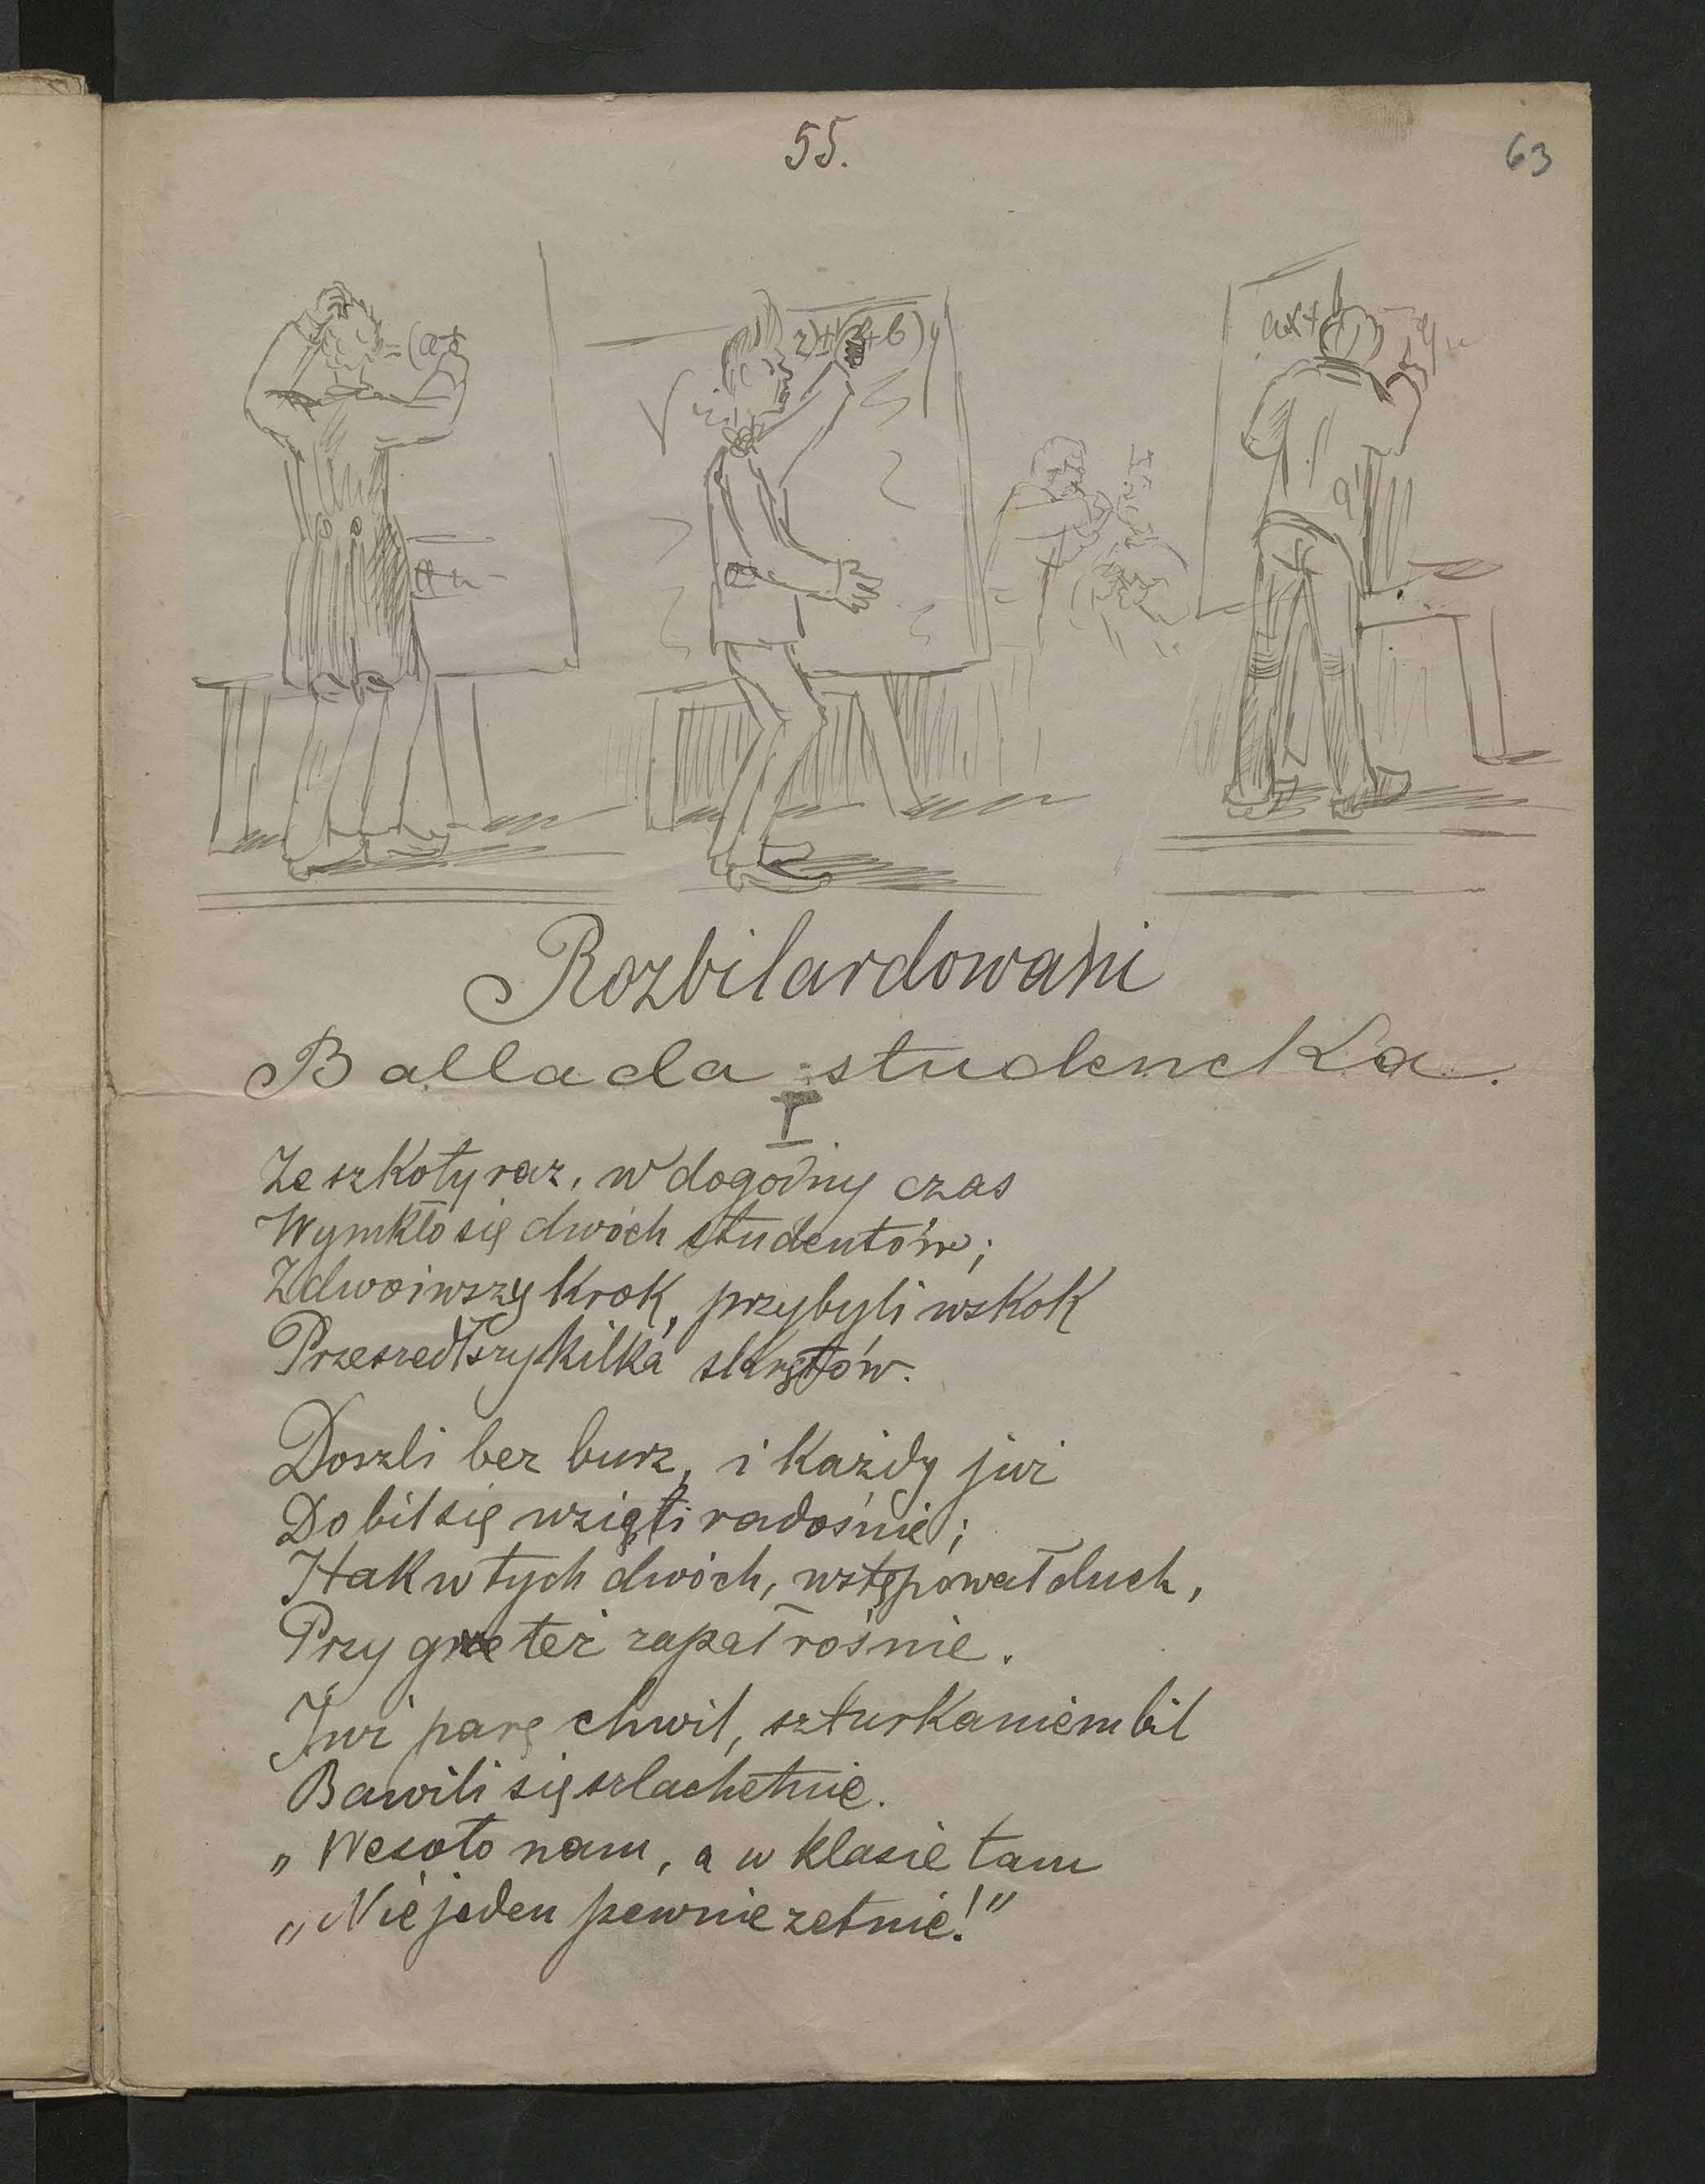 55.
63
=(a+
2)+(2+b)y
ax+b
Rozbilardowani
Ballada studencka.
I
Ze szkoły raz, w dogodny czas
Wymkło się dwóch studentów;
Zdwoiwszy krok, przybyli wskok
Przeszedłszy kilka skrętów.
Doszli bez burz, i każdy już
Do bil się wzięli radośnie;
I tak w tych dwóch, wstępował duch,
Przy grze też zapał rośnie.
Już parę chwil, szturkaniem bil
Bawili się szlachetnie.
„Wesoło nam, a w klasie tam
„Nie jeden pewnie zetnie!"